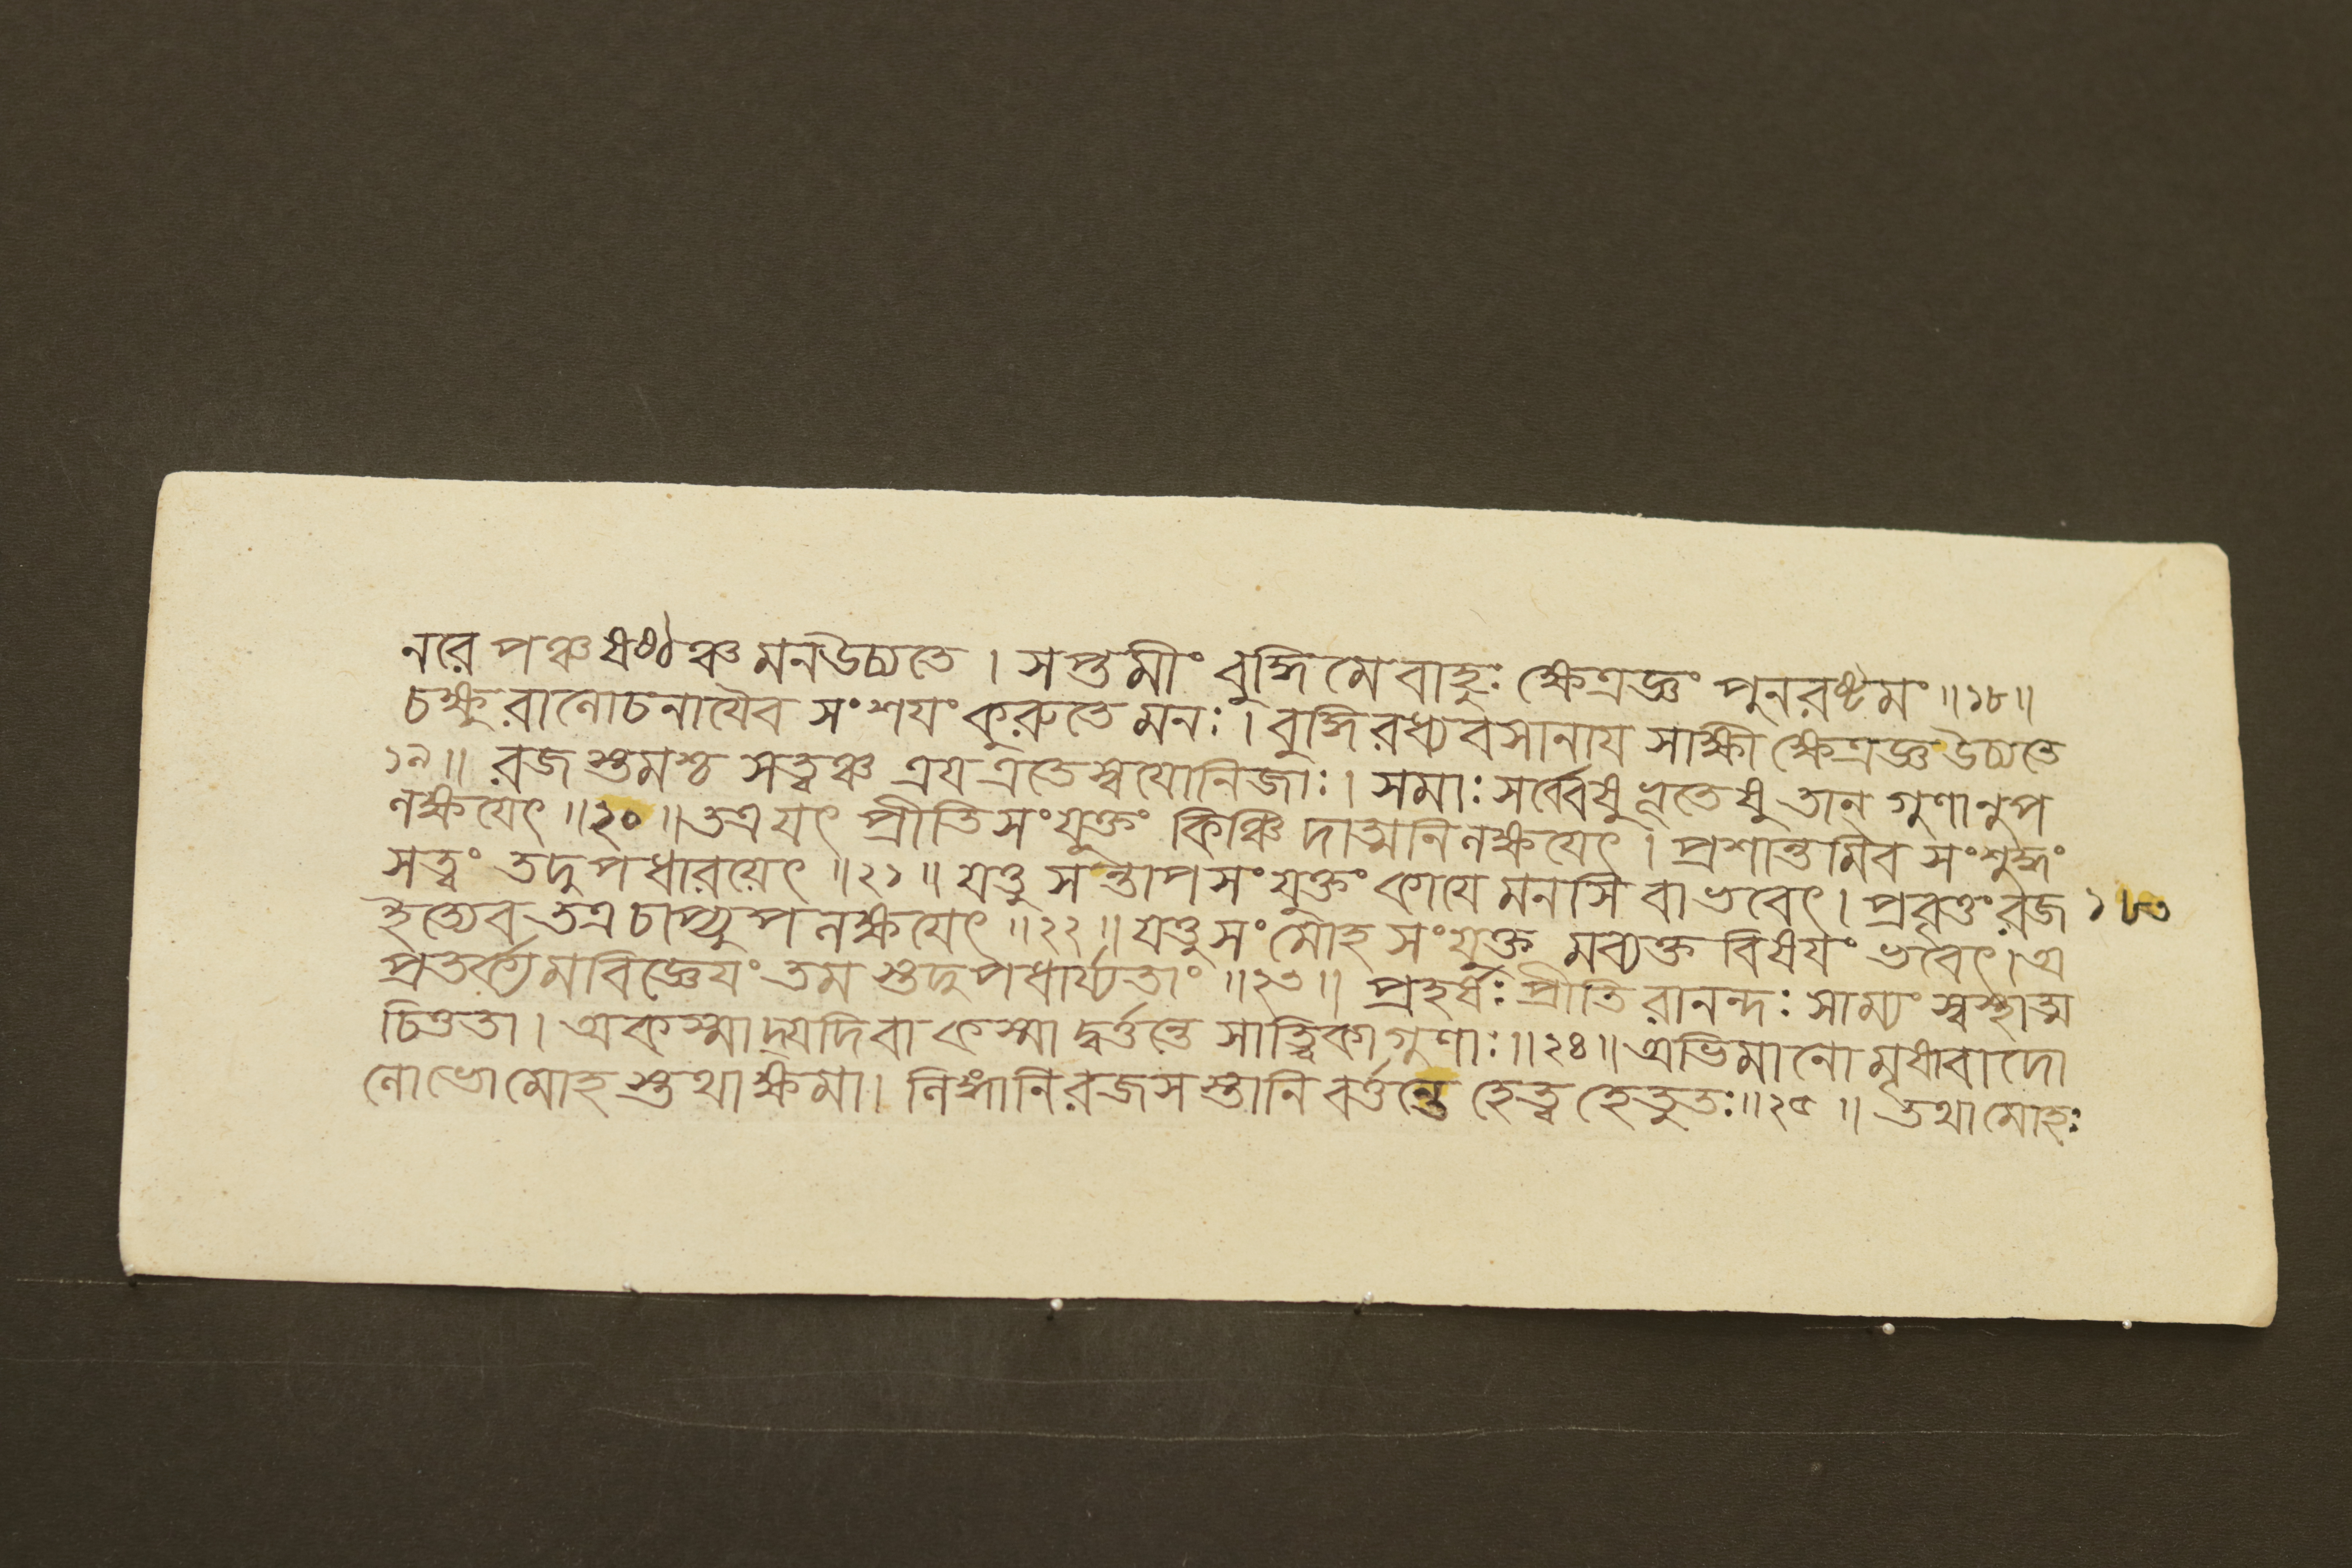 নরে পঞ্চ ষষ্ঠঞ্চ মনউচ্যতে । সপ্তমীং বুদ্ধিমেবাহুঃ ক্ষেত্রজ্ঞং পুনরষ্টমং ॥১৮॥
চক্ষুরালোচনাযৈব সংশযং কুরুতে মনঃ । বুদ্ধিরধ্যবসানায সাক্ষী ক্ষেত্রজ্ঞ উচ্যতে
১৯॥ রজস্তমশ্চ সত্ত্বঞ্চ ত্রয এতে স্বযোনিজাঃ । সমাঃ সর্ব্বেষু ভূতেষু তান্ গুণানুপ
লক্ষযেৎ ॥২০॥ তত্র যৎ প্রীতিসংযুক্তং কিঞ্চিদাত্মনি লক্ষযেৎ । প্রশান্তমিব সংশুদ্ধং
সত্ত্বং তদুপধারয়েৎ ॥২১॥ যত্তু সন্তাপসংযুক্তং কাযে মনসি বা ভবেৎ । প্রবৃত্তং রজ ১৮৩
ইত্যেব তত্র চাপ্যুপলক্ষযেৎ ॥২২॥ যত্তু সংমোহসংযুক্তমব্যক্তবিষযং ভবেৎ । অ
প্রতর্ক্যমবিজ্ঞেযং তমস্তদুপধার্য্যতাং ॥২৩॥ প্রহর্ষঃ প্রীতিরানন্দঃ সাম্যং স্বস্থাত্ম
চিত্ততা । অকস্মাদ্যদি বা কস্মাদ্বর্ত্তন্তে সাত্ত্বিকা গুণাঃ ॥২৪॥ অভিমানো মৃষাবাদো
লোভো মোহস্তথাক্ষমা । লিঙ্গানি রজসস্তানি বর্ত্তন্তে হেত্বহেতুতঃ ॥২৫॥ তথা মোহঃ